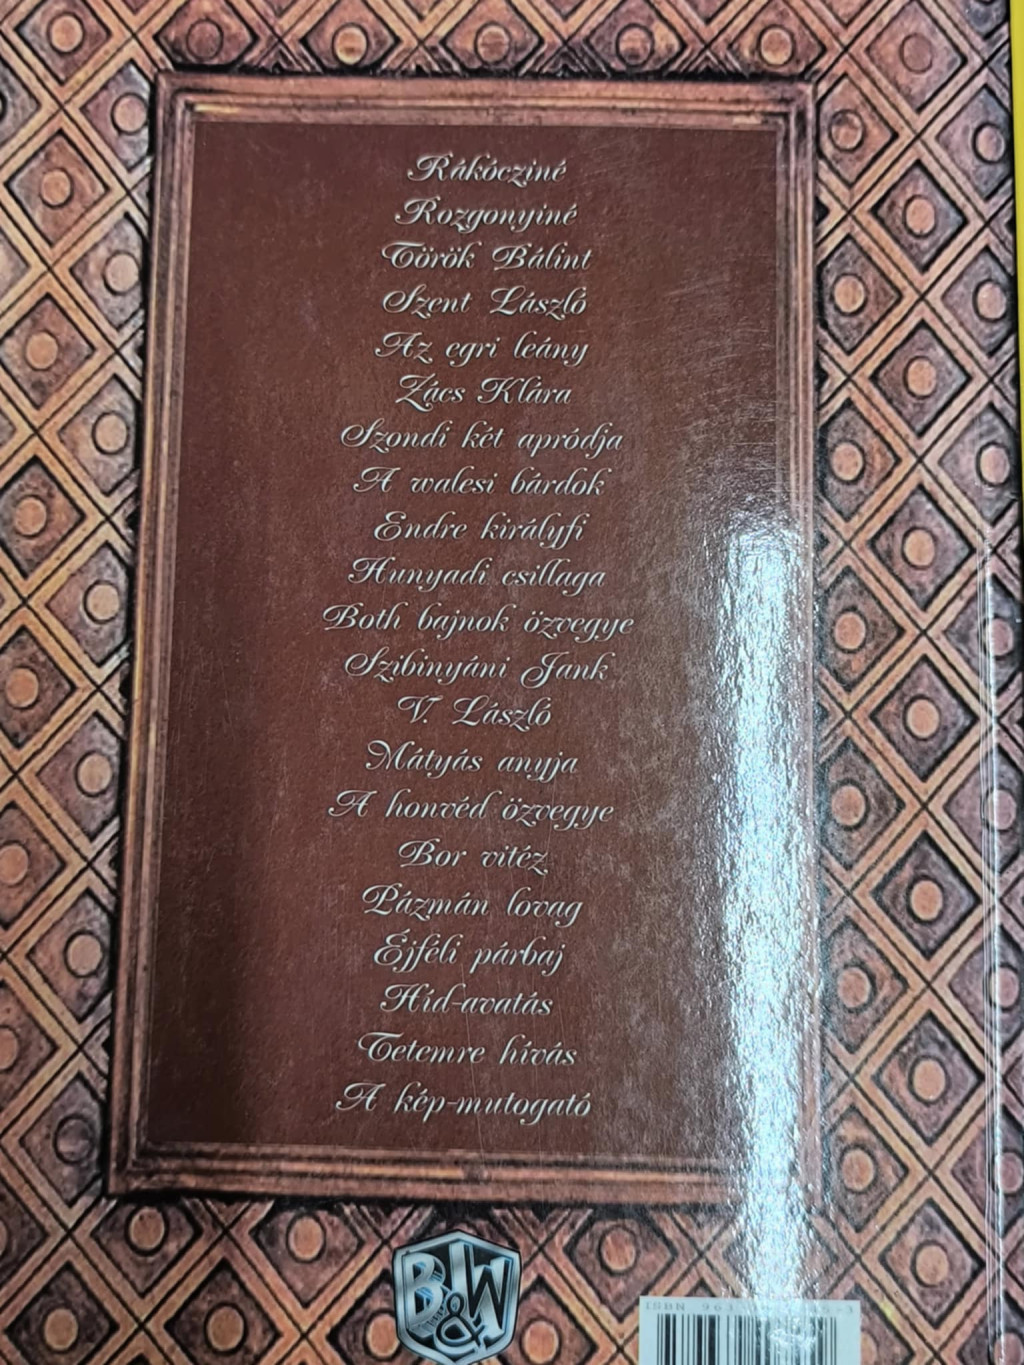 Rákócziné
Rozgonyiné
Török Bálint
Szent László
Az egri leány
Zács Klára
Szondi két apródja
A walesi bárdok
Endre királyfi
Hunyadi csillaga
Both bajnok özvegye
Szibinyáni Jank
V. László
Mátyás anyja
A honvéd özvegye
Bor vitéz
Pázmán lovag
Éjféli párbaj
Híd-avatás
Tetemre hívás
A kép-mutogató
B&W
ISBN